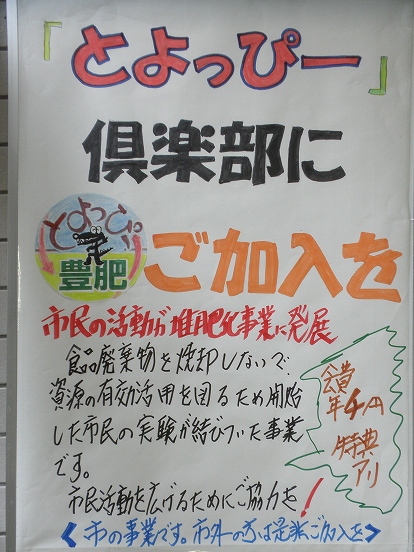 「とよっぴー」
倶楽部に
とよっぴー
豊肥
ご加入を
市民の活動が堆肥化事業に発展
食品廃棄物を焼却しないで
資源の有効活用を図るため開始
した市民の実験が結びついた事業
です。
市民活動を広げるためにご協力を!
会費
特典
アリ
<市の事業です。市外の方は是非ご加入を>